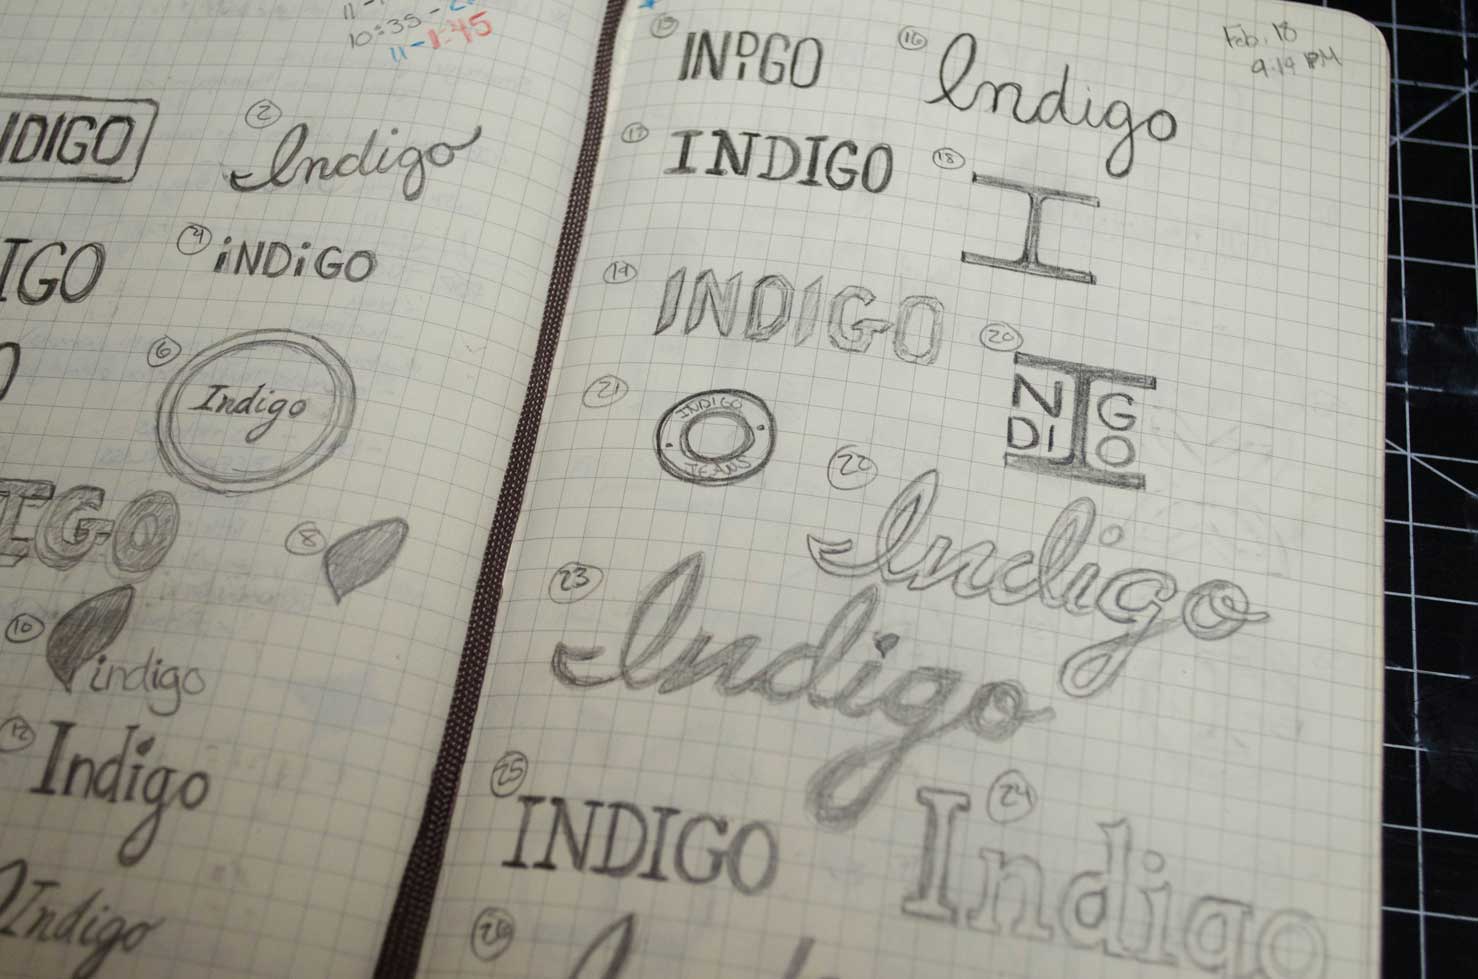 10:35-
11-1:45
IDIGO
2
Indigo
IGO
4
iNDiGO
6
Indigo
IGO
8
10
indigo
12
Indigo
Indigo
Feb. 18
9:19 PM
15
INDiGO
16
Indigo
17
INDIGO
18
I
19
INDIGO
20
I
N
G
DI
O
21
INDIGO
JEANS
22
Indigo
23
Indigo
25
INDIGO
24
Indigo
26